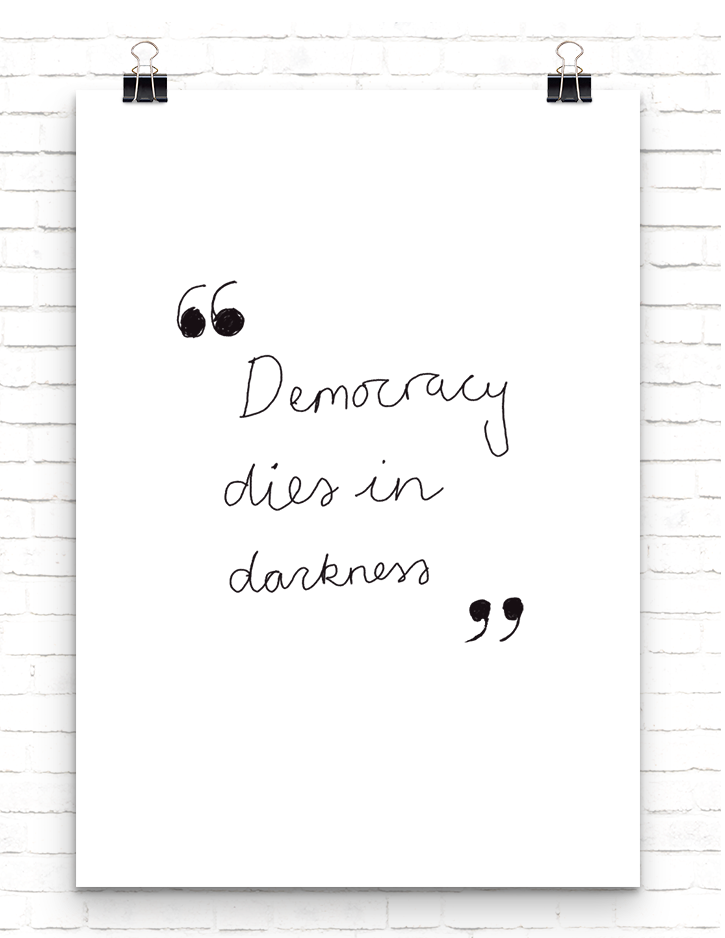 “Democracy
dies in
darkness”